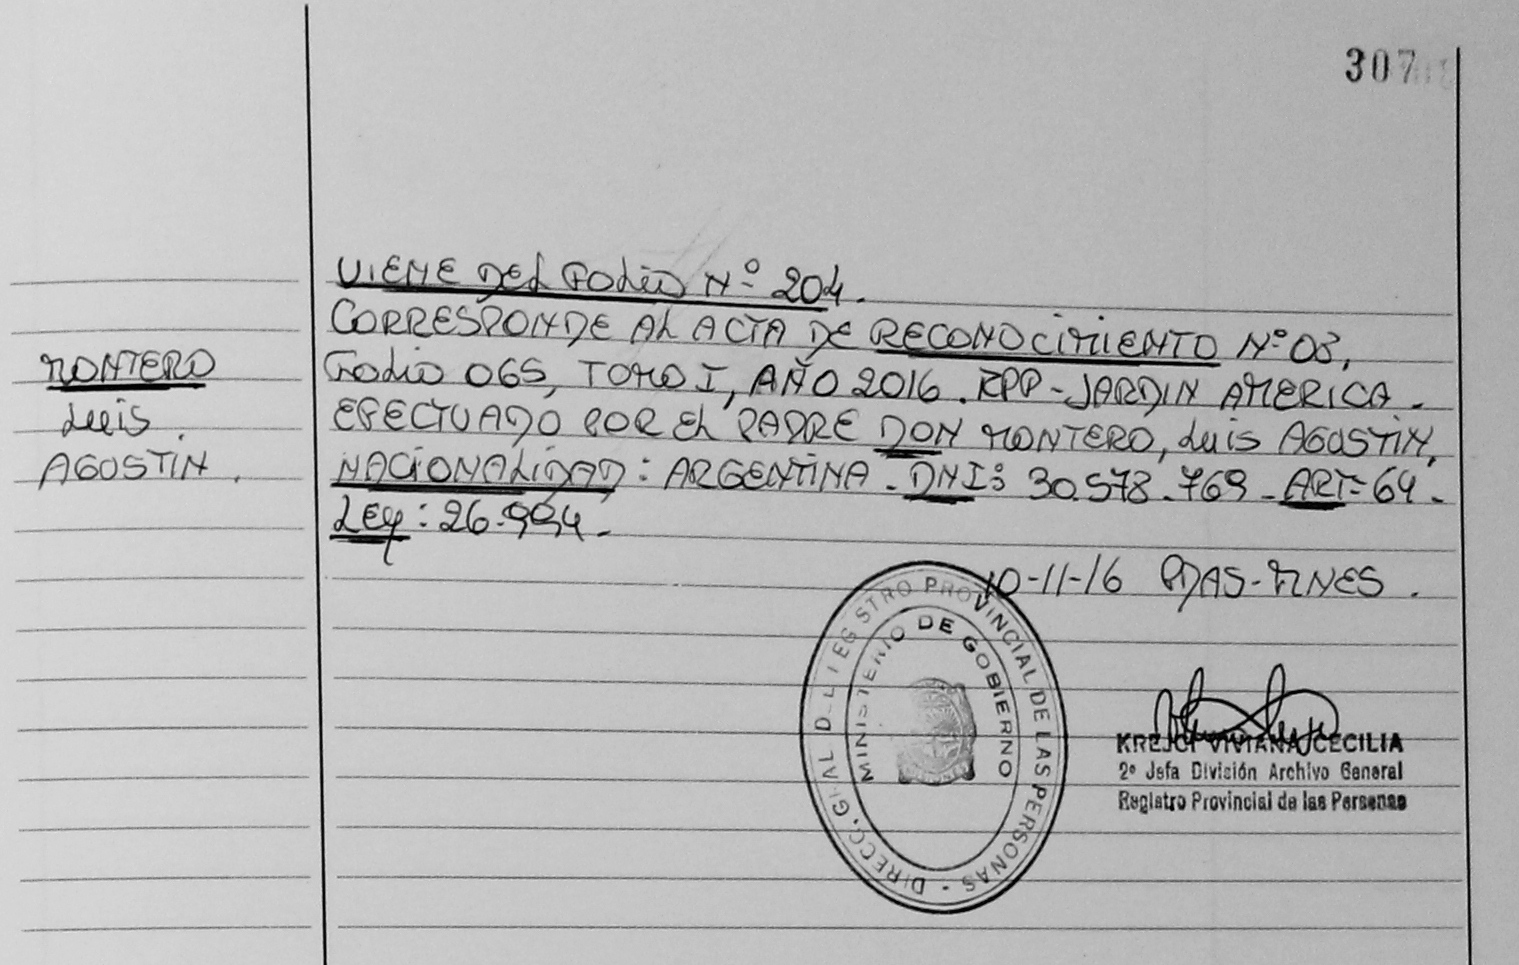 307
VIENE DEL Folio Nº 204.
CORRESPONDE AL ACTA DE RECONOCIMIENTO Nº 03,
Folio 065, TOMO I, AÑO 2016. RPP-JARDIN AMERICA.
EFECTUADO POR EL PADRE DON MONTERO, Luis AGUSTIN,
NACIONALIDAD: ARGENTINA. DNI: 30.578.769 - ART= 64.
Ley: 26.994.
MONTERO
Luis
AGUSTIN.
10-11-16 PDAS-MNES.
DIRECC. GRAL DEL REGISTRO PROVINCIAL DE LAS PERSONAS -
MINISTERIO DE GOBIERNO
KREJCI VIVIANA CECILIA
2º Jefa División Archivo General
Registro Provincial de las Personas